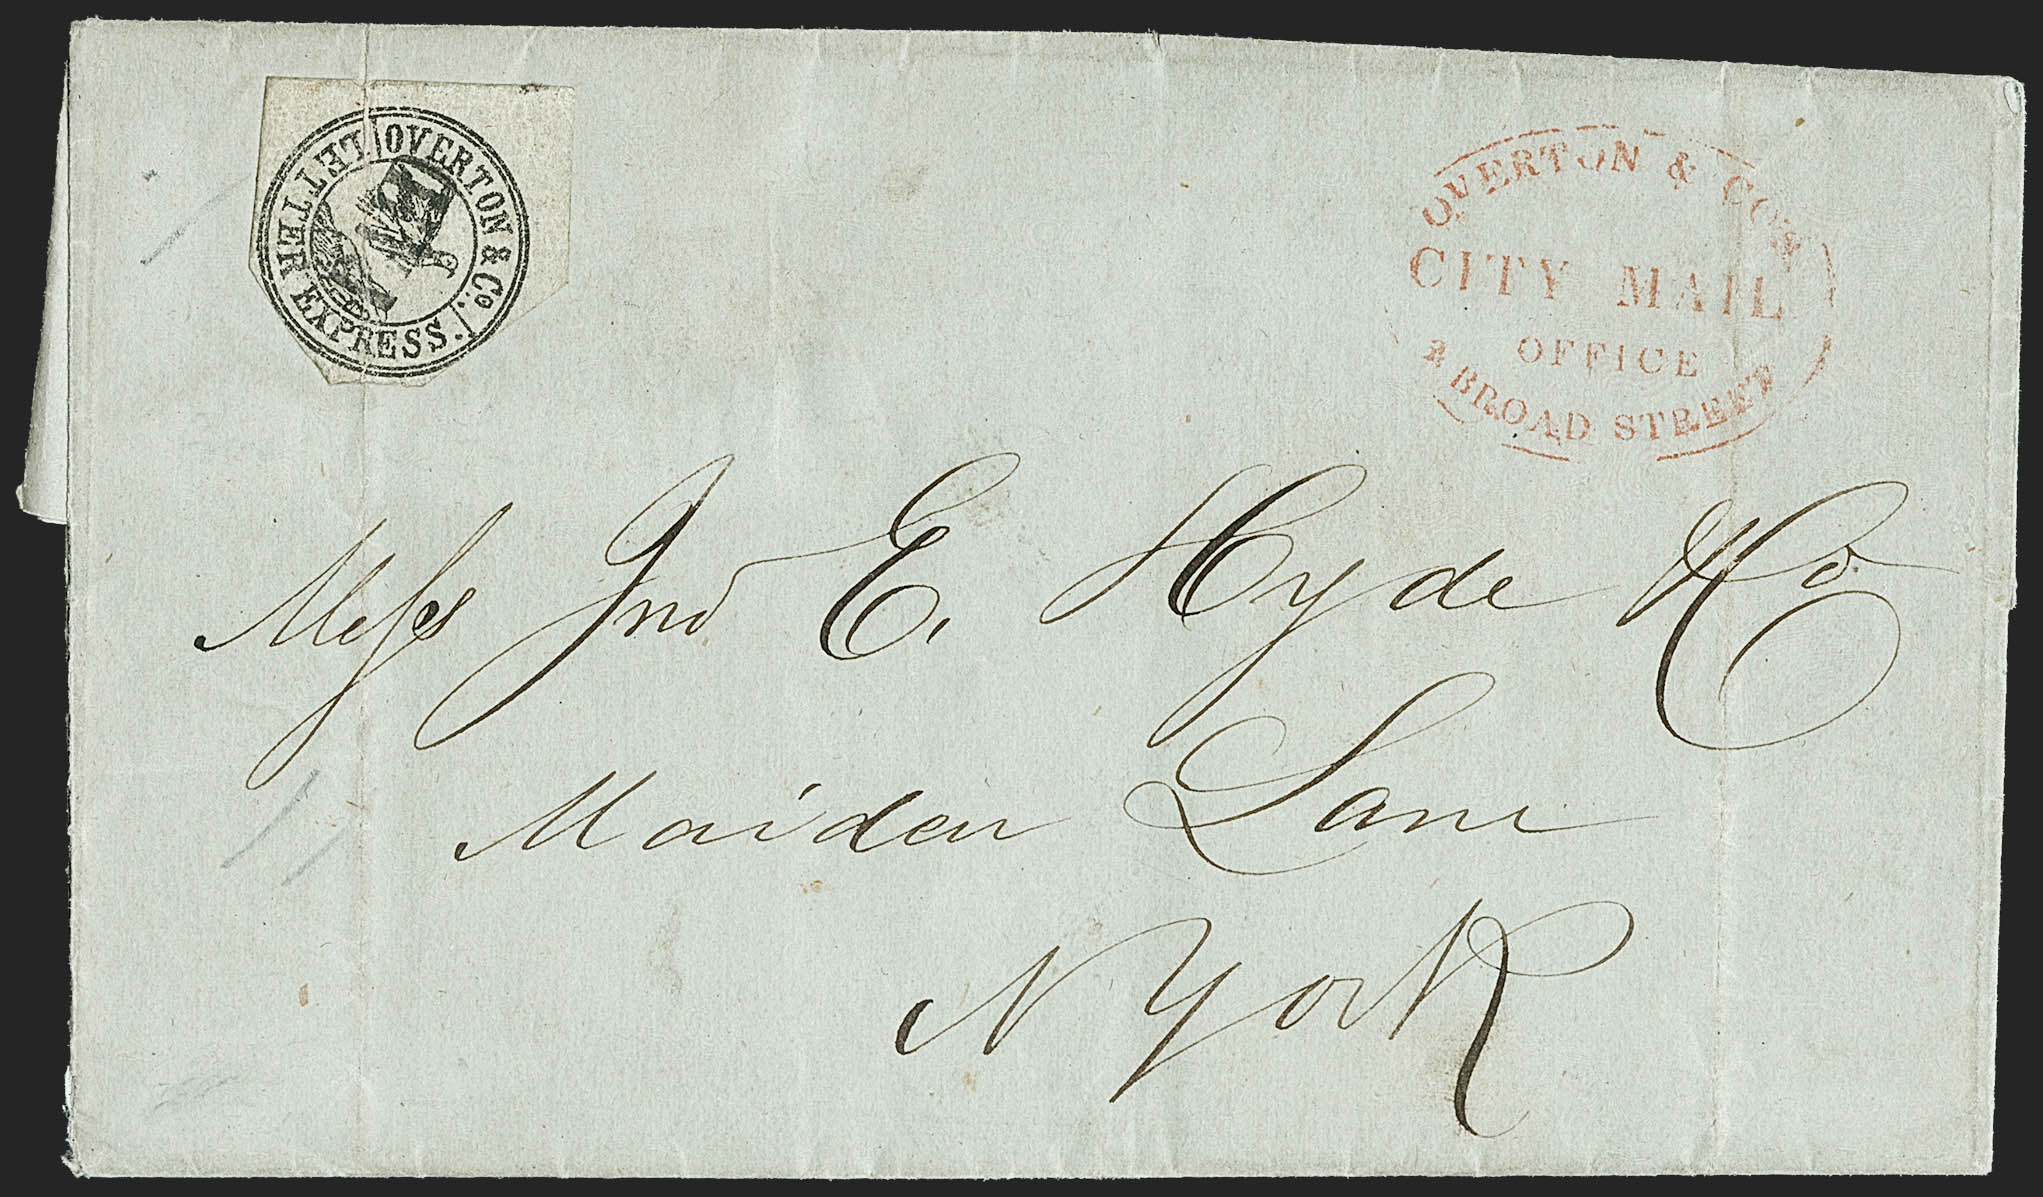 OVERTON & Co.
LETTER EXPRESS.
OVERTON & CO.'S
CITY MAIL
OFFICE
2 BROAD STREET
Mess Jno E. Hyde & Co
Maiden Lane
N York